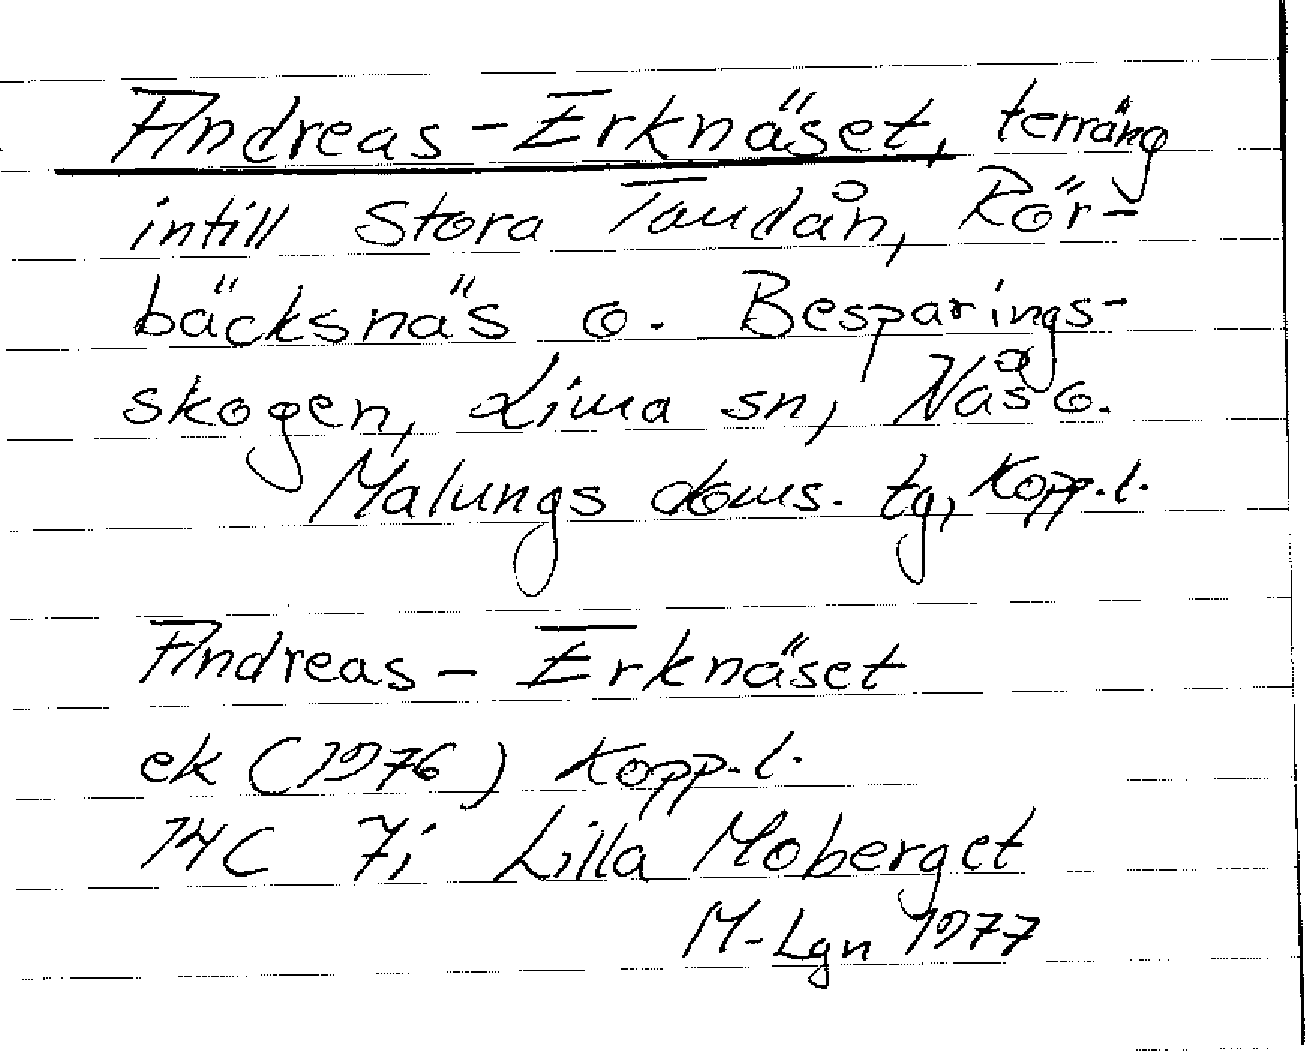 Andreas-Erknäset, terräng
intill Stora Tandån, Rör-
bäcksnäs o. Besparings-
skogen, Lima sn, Nås o.
Malungs doms. tg, Kopp.l.
Andreas- Erknäset
ek (1976) Kopp.l.
14C 7i Lilla Moberget
M-Lgn 1977